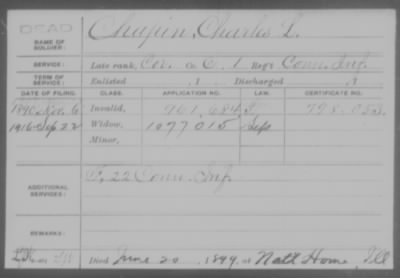 DEAD
NAME OF SOLDIER: Chapin, Charles L.
SERVICE: Late rank, Cor. Co. C, 1 Reg't Conn. Inf.
TERM OF SERVICE: Enlisted , 1 Discharged , 1
DATE OF FILING. CLASS. APPLICATION NO. LAW. CERTIFICATE NO.
1890 Nov. 6 Invalid, 961,684 798.053.
1916 Sep 22 Widow, 1077015 Sep
Minor,
ADDITIONAL SERVICES: F, 22 Conn. Inf.
REMARKS:
Died June 20, 1899, at Natl Home, Ill